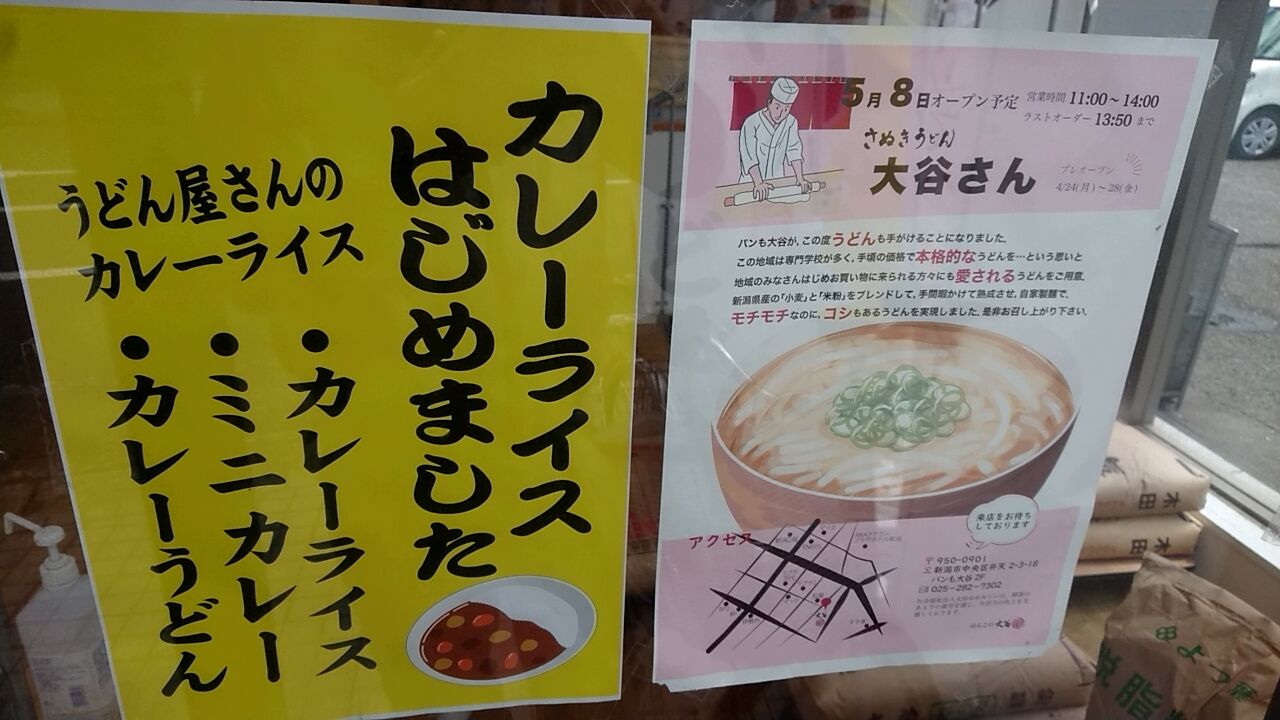 カレーライス
はじめました
うどん屋さんの
カレーライス
・カレーライス
・ミニカレー
・カレーうどん
5月8日オープン予定
営業時間 11:00～14:00
ラストオーダー 13:50 まで
さぬきうどん
大谷さん
プレオープン
4/24(月)～28(金)
パンも大谷が、この度うどんも手がけることになりました。
この地域は専門学校が多く、手頃の価格で本格的なうどんを…という思いと
地域のみなさんはじめお買い物に来られる方々にも愛されるうどんをご用意。
新潟県産の「小麦」と「米粉」をブレンドして、手間暇かけて熟成させ、自家製麺で、
モチモチなのに、コシもあるうどんを実現しました。是非お召し上がり下さい。
アクセス
ENEOS
来店をお待ち
しております
〒950-0901
新潟市中央区弁天 2-3-18
パンも大谷 2F
025-282-7302
木田
木田
脱脂